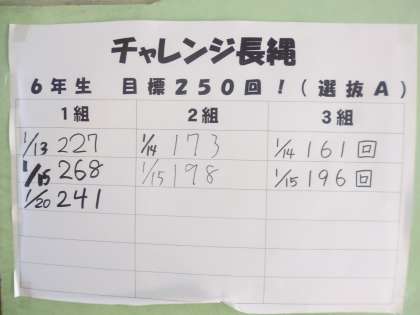 チャレンジ長縄
6年生 目標250回!(選抜A)
1組 2組 3組
1/13 227 1/14 173 1/14 161回
1/15 268 1/15 198 1/15 196回
1/20 241